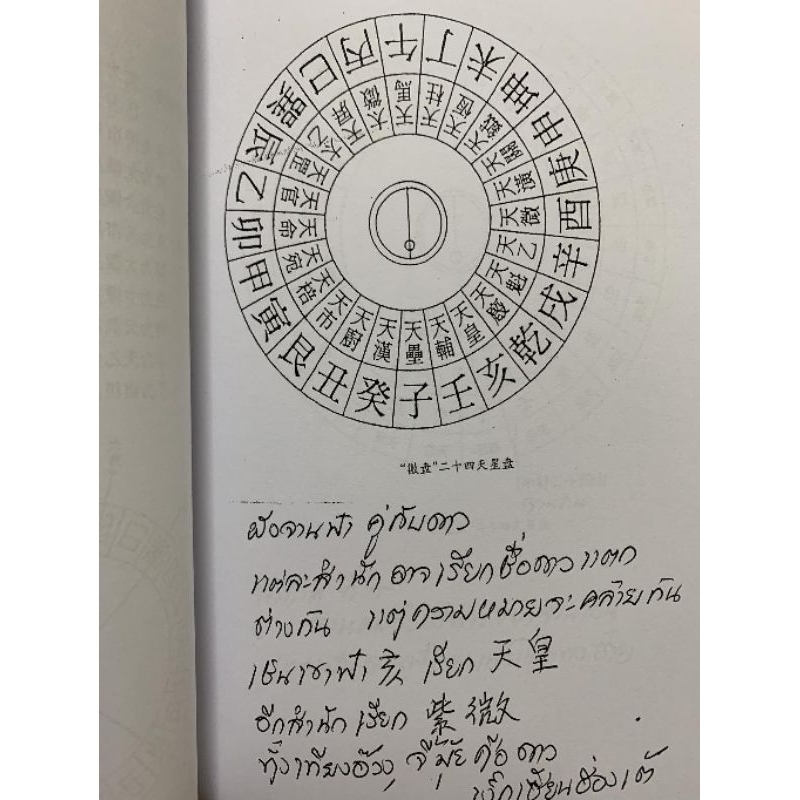 午 丁 未 坤 申 庚 酉 辛 戌 乾 亥 壬 子 癸 丑 艮 寅 甲 卯 乙 辰 巽 巳 丙
天馬 天柱 天 天鉞 天關 天潢 天 天乙 天魁 天廄 天皇 天輔 天壘 天漢 天廚 天市 天棓 天苑 天命 天官 天罡 太乙 天屏 太微
“徽盘”二十四天星盘
ผังจานฟ้า คู่กับดาว
แต่ละสำนัก อาจเรียกชื่อดาว แตก
ต่างกัน แต่ความหมายจะคล้ายกัน
เช่นเขาฟ้า 亥 เรียก 天皇
อีกสำนัก เรียก 紫微
ทั้งเทียงอ๊วง, จี๋มุ้ย คือ ดาว
เง็กเซียนฮ่องเต้